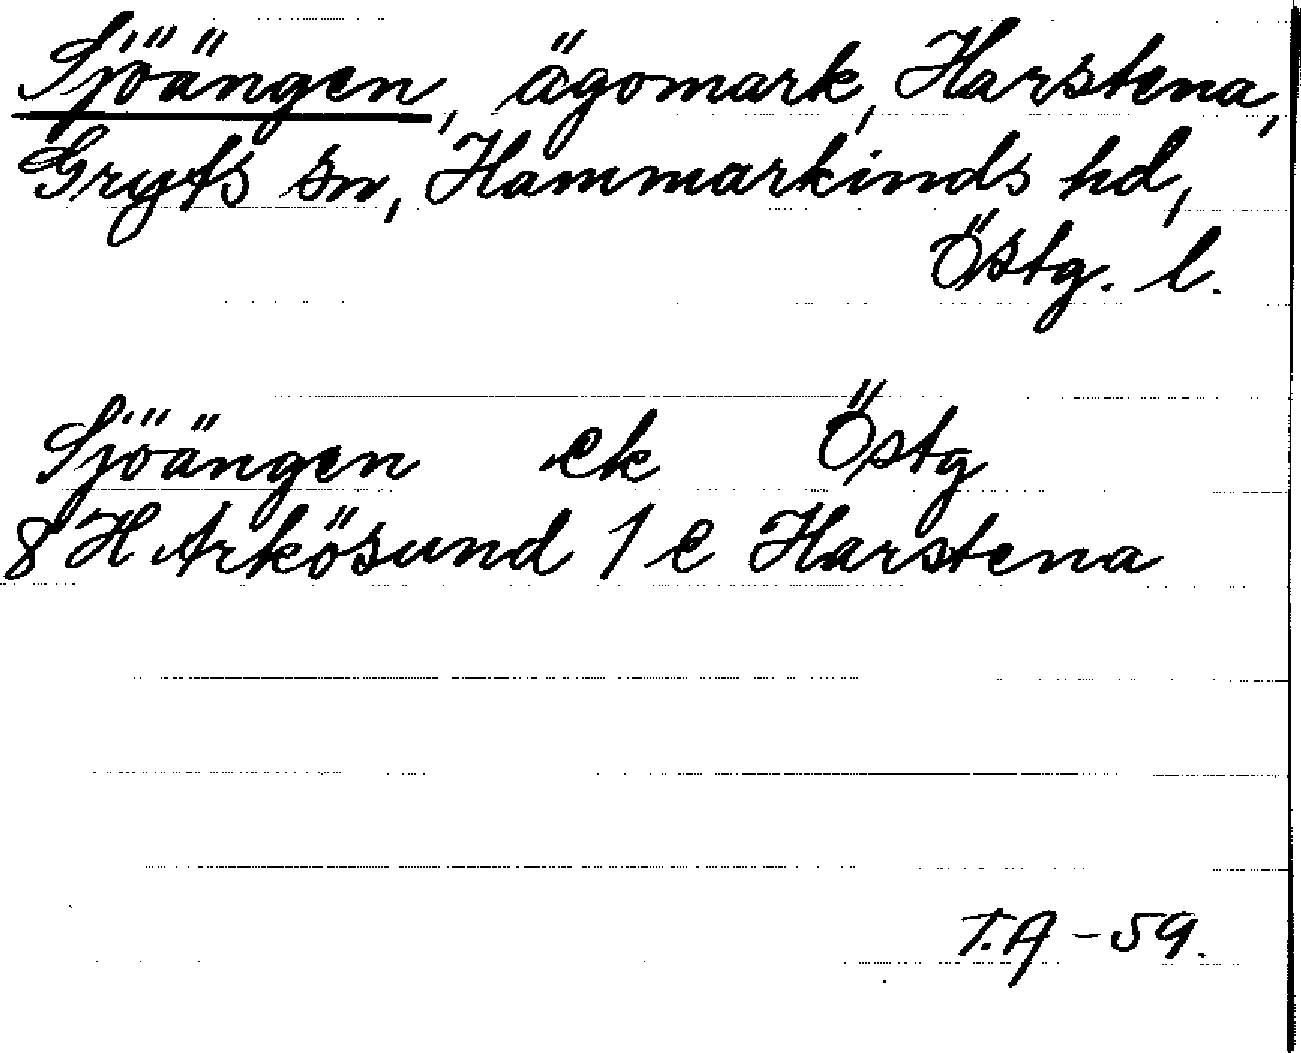 Sjöängen, ägomark, Harstena,
Gryts sn, Hammarkinds hd,
Östg. l.
Sjöängen ek Östg
8 H Arkösund 1 e Harstena
T.A - 59.